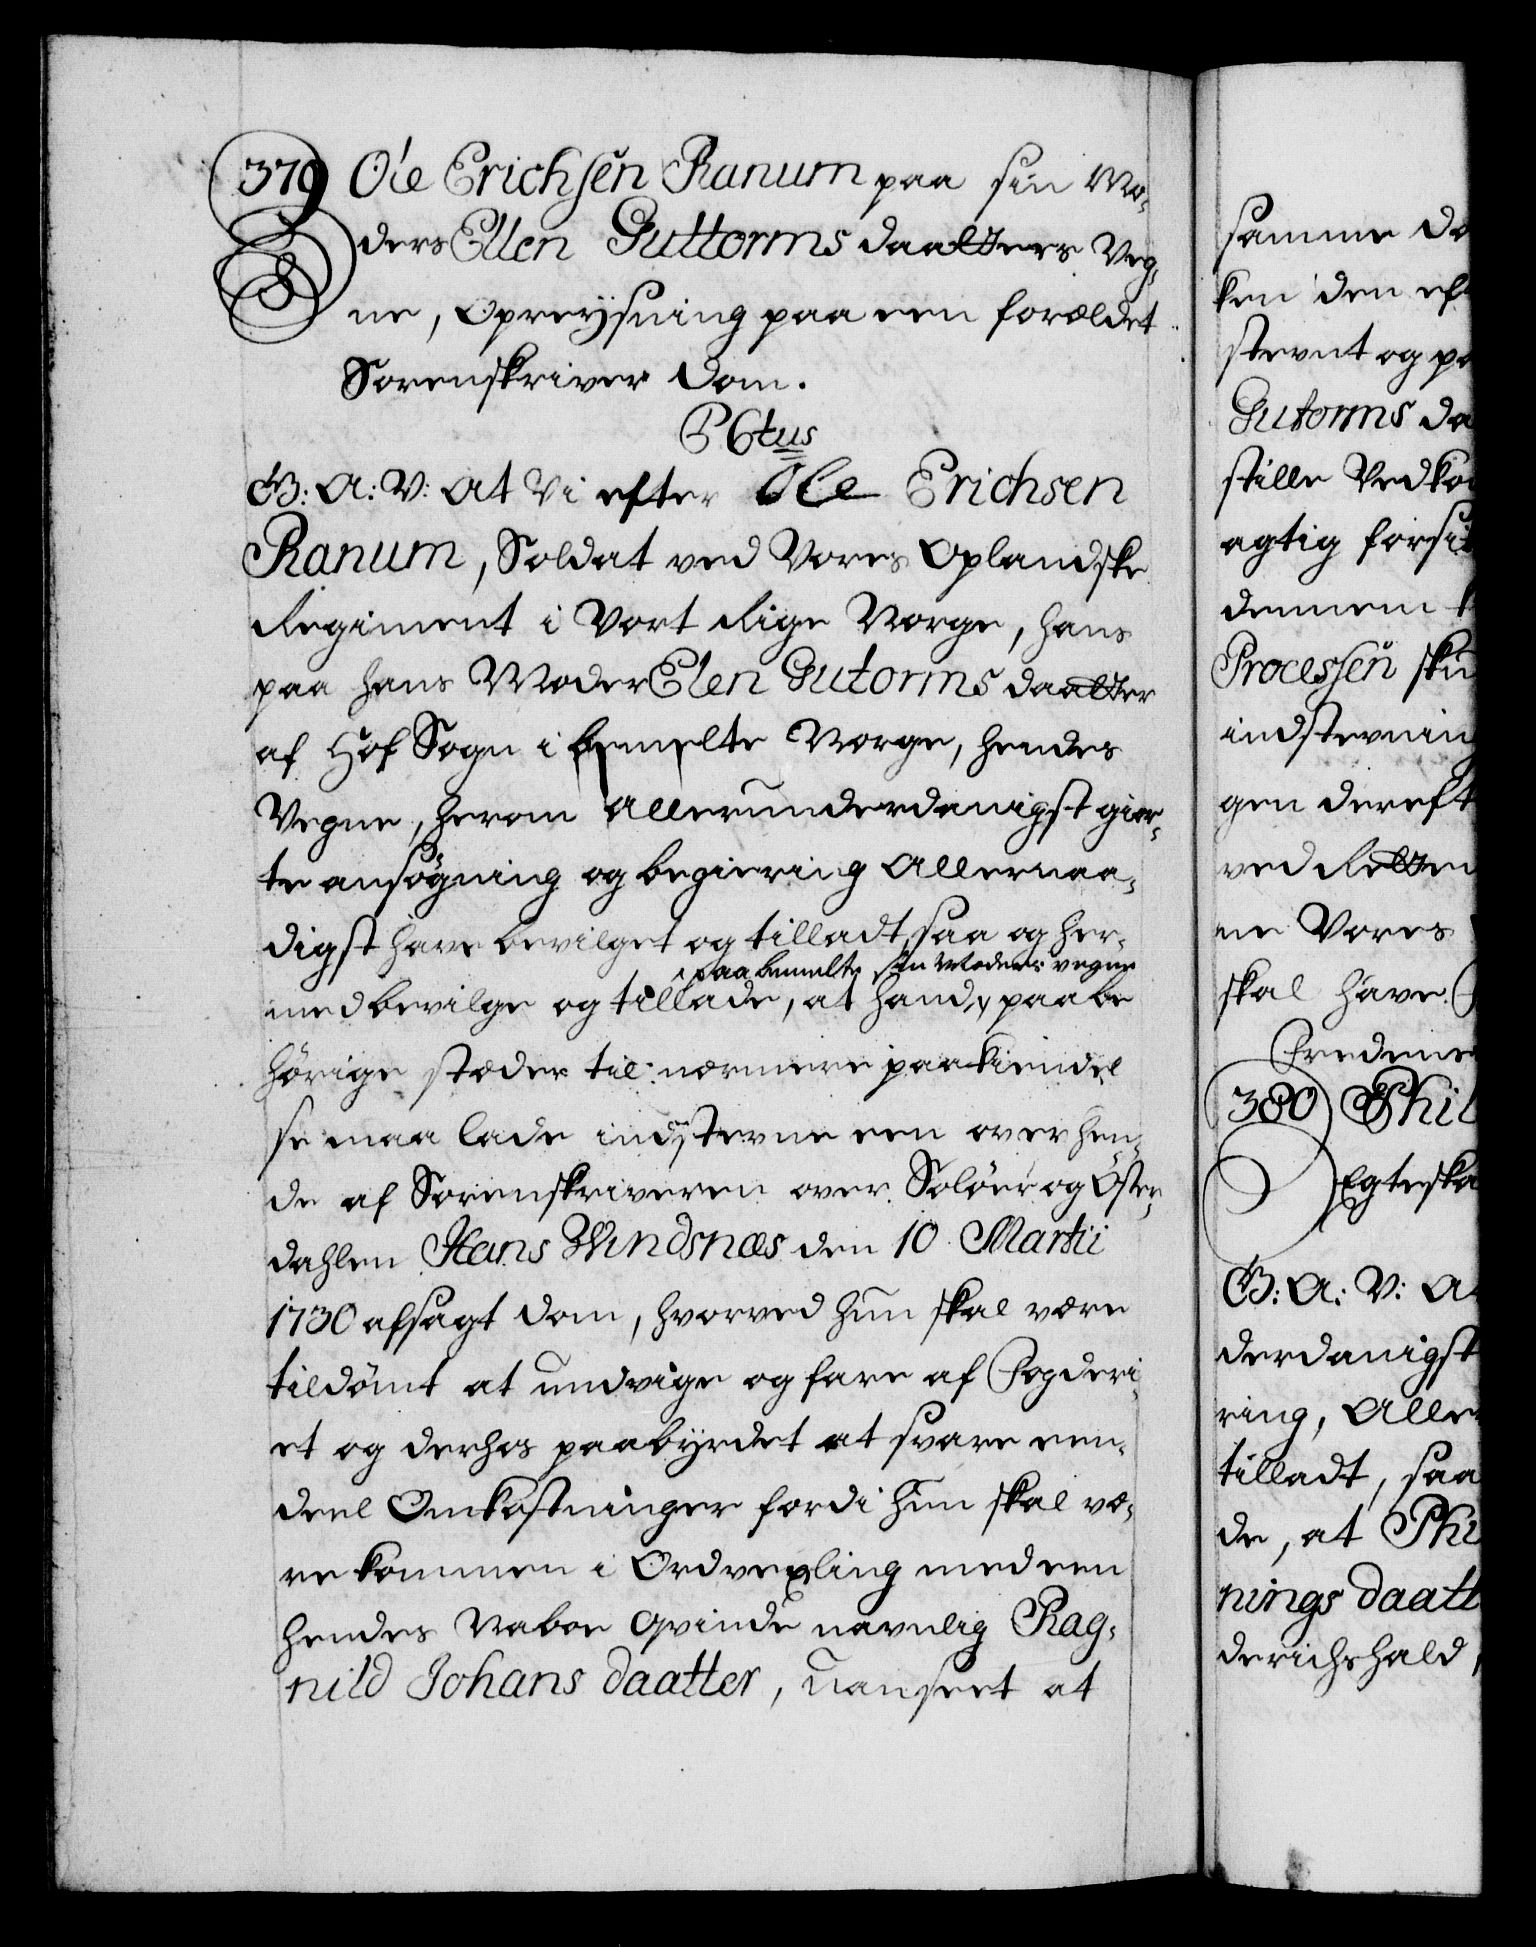 379 Ole Erichsen Ranum paa sin Mo-
ders Ellen Guttorms daatters Veg-
ne, Opreysning paa een forældet
Sorenskriver Dom.
G: A: V: At Vi efter Ole Erichsen
Ranum, Soldat ved Vores Oplandske
Regiment i Vort Rige Norge, hans
paa hans Moder Elen Gutorms daatter
af Hof Sogn i bemelte Norge, hendes
Vegne, herom allerunderdanigst gior-
te ansøgning og begiering Allernaa-
digst have bevilget og tilladt, saa og her-
paa bemelte sin Moders vegne
med bevilge og tillade, at hand, paa be
hørige stæder til nærmere paakiendel
se maa lade indstevne een over hen-
de af Sorenskriveren over Soløer og Øster-
dahlen Hans Windsnæs den 10 Martii
1730 afsagt Dom, hvorved hun skal være
tildømt at undvige og fare af Fogderi-
et og derhos paabyrdet at svare een-
deel Omkostninger fordi hun skal væ-
re kommen i Ordvexling med een
hendes Naboe Qvinde navnlig Rag-
nild Johans daatter, uanseet at
samme Do
ken den eft
stevnt og pa
Gutorms da
stille Vedko
agtig forsi
dennem
Processen sku
indstevnin
gen dereft
ved Retten
ne Vores
skal have
Fredens
380 Phil
Egteska
G: A: V: A
derdanigst
ring, Aller
tilladt, saa
de, at Phi
nings daatt
derichshald,